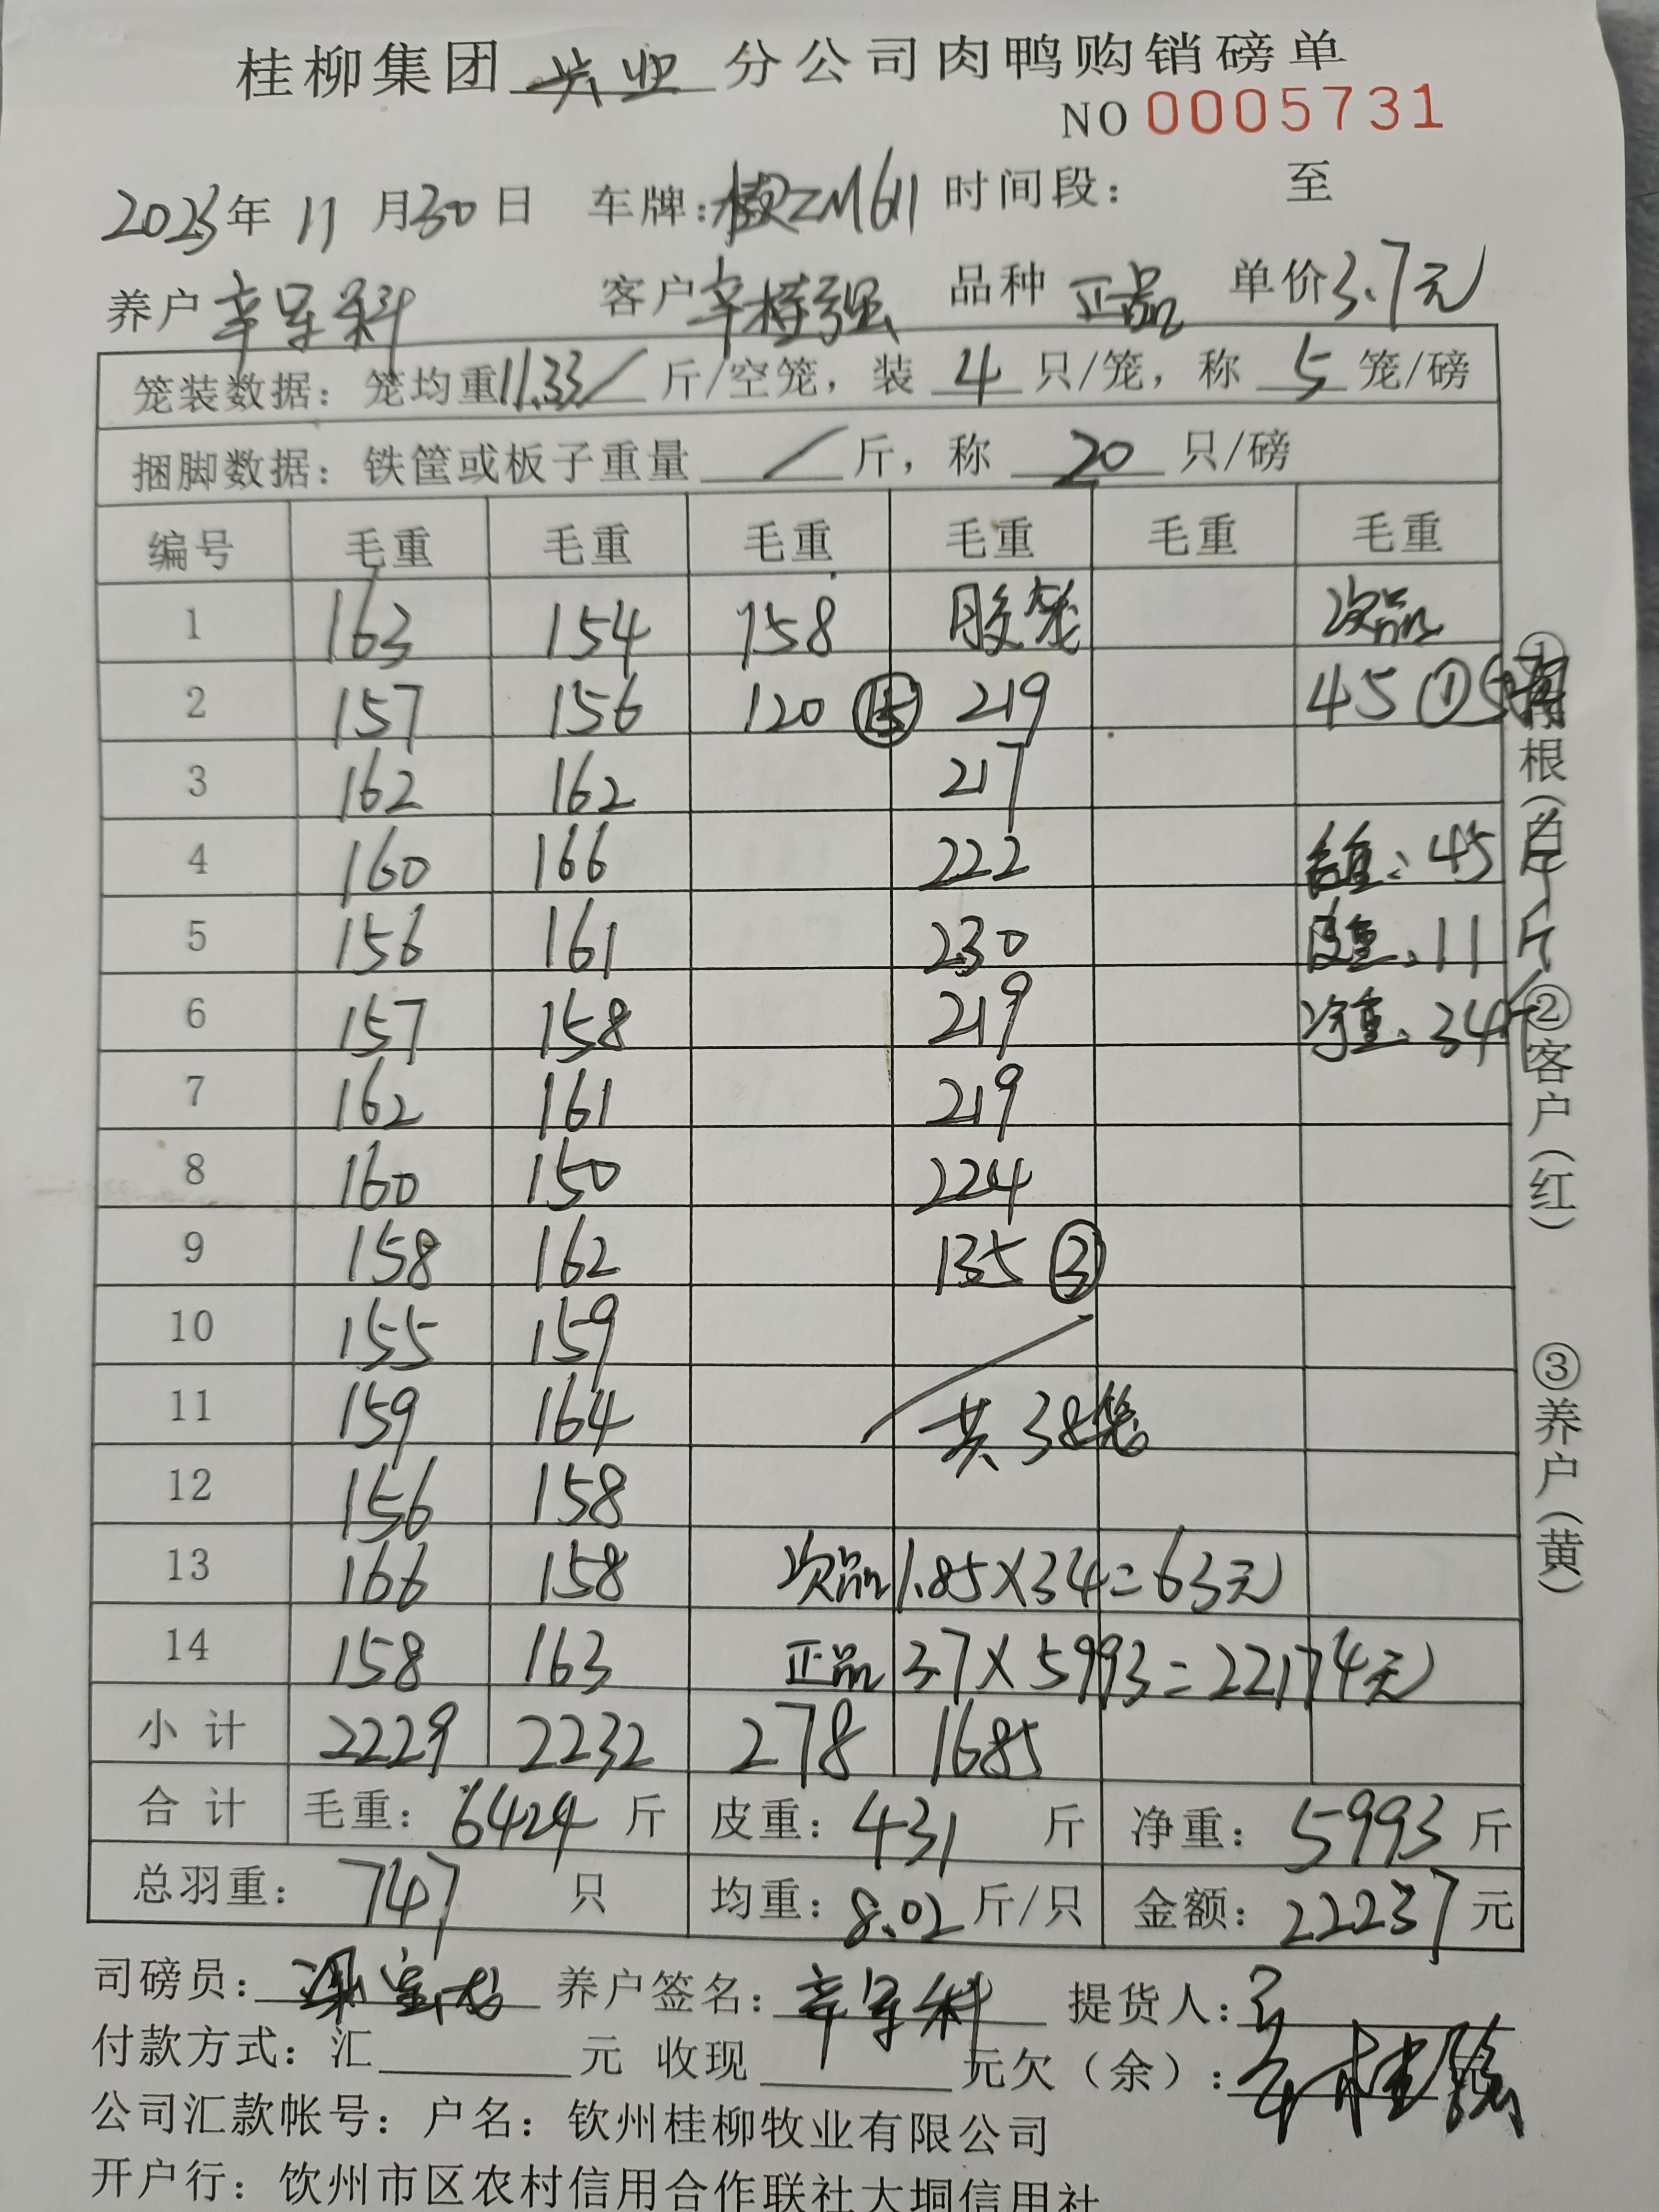 桂柳集团 兴业 分公司肉鸭购销磅单
NO 0005731
2023年 11 月30 日 车牌:桂ZM611 时间段: 至
养户 客户 辛桂强 品种 正品 单价3.7元
笼装数据: 笼均重11.33/ 斤/空笼, 装 4 只/笼, 称 5 笼/磅
捆脚数据: 铁筐或板子重量 / 斤, 称 20 只/磅
编号 毛重 毛重 毛重 毛重 毛重 毛重
1 163 154 158 胶笼 次品
2 157 156 120 ⑮ 219 45 ①
3 162 162 217
4 160 166 222 毛重: 45斤
5 156 161 230 皮重: 11斤
6 157 158 219 净重: 34斤
7 162 161 219
8 160 150 224
9 158 162 135 ③
10 155 159
11 159 164 共38笼
12 156 158
13 166 158 次品 1.85×34=63元
14 158 163 正品 3.7×5993=22174元
小计 2229 2232 278 1685
合计 毛重: 6424 斤 皮重: 431 斤 净重: 5993 斤
总羽重: 747 只 均重: 8.02 斤/只 金额: 22237 元
司磅员: 养户签名: 提货人:
付款方式: 汇 元 收现 元欠(余):
公司汇款帐号: 户名: 钦州桂柳牧业有限公司
开户行: 钦州市区农村信用合作联社大垌信用社
根(白) ②客户(红) ③养户(黄)